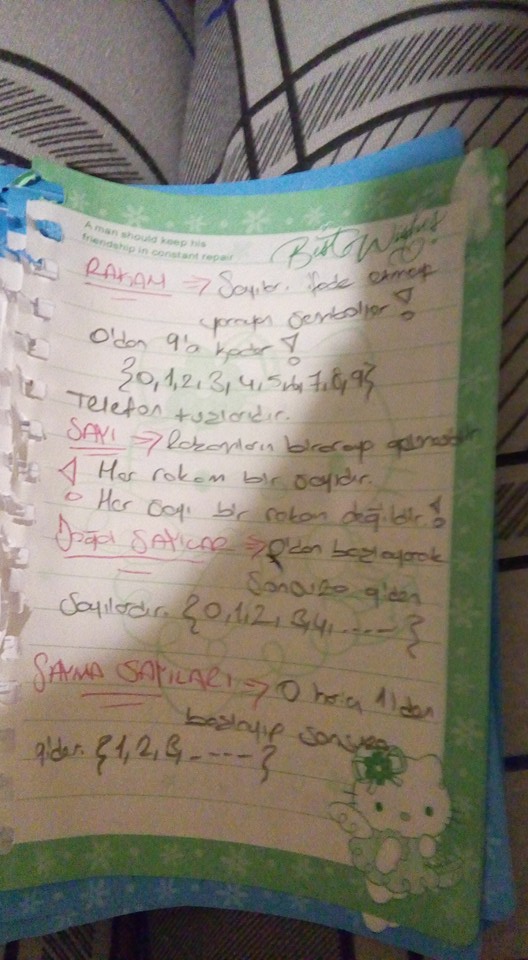 A man should keep his
friendship in constant repair
Best Wishes
RAKAM => Sayıları ifade etmeye
yarayan semboller !
0'dan 9'a kadar !
{0,1,2,3,4,5,6,7,8,9}
Telefon tuşlarıdır.
SAYI => Rakamların biraraya
! Her rakam bir sayıdır.
Her sayı bir rakam değildir !
Doğal SAYILAR => 0'dan başlayarak
Sonsuza giden
Sayılardır. {0,1,2,3,4,.....}
SAYMA SAYILARI => 0 hariç 1'den
başlayıp sonsuza
gider. {1,2,3,.....}